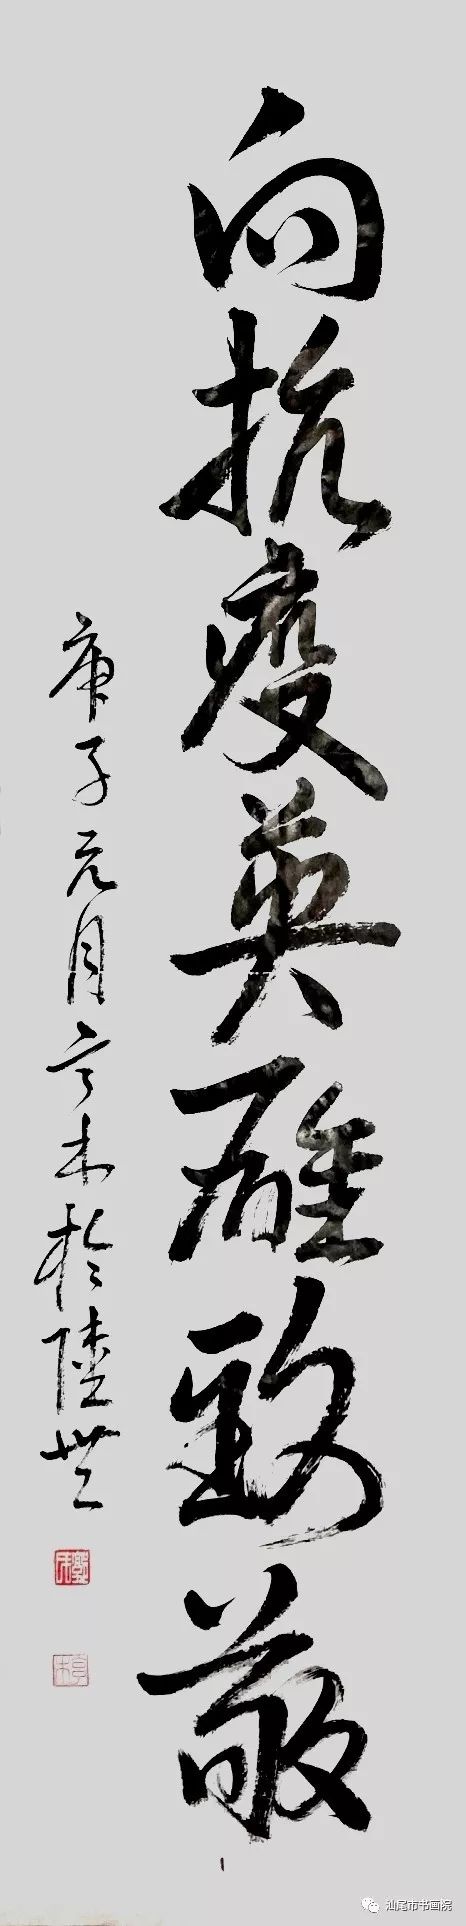 向抗疫英雄致敬
庚子元月言木於陸豐
汕尾市书画院